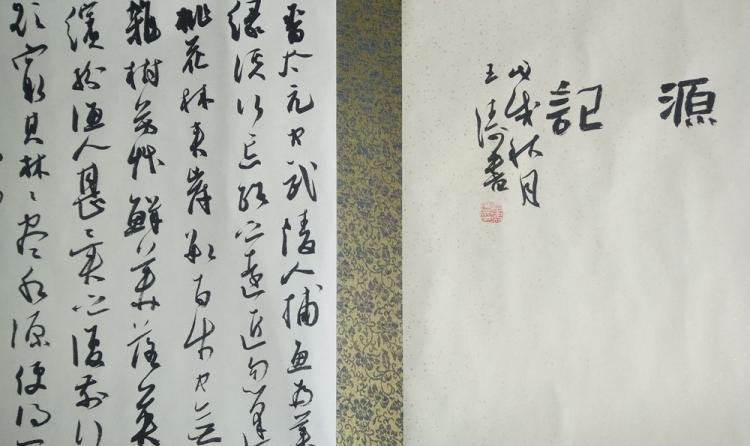 源記
戊戌秋月
王書
晉太元中武陵人捕魚為業
緣溪行忘路之遠近忽逢
桃花林夾岸數百步中無
雜樹芳草鮮美落英
繽紛漁人甚異之復前行
欲窮其林林盡水源便得